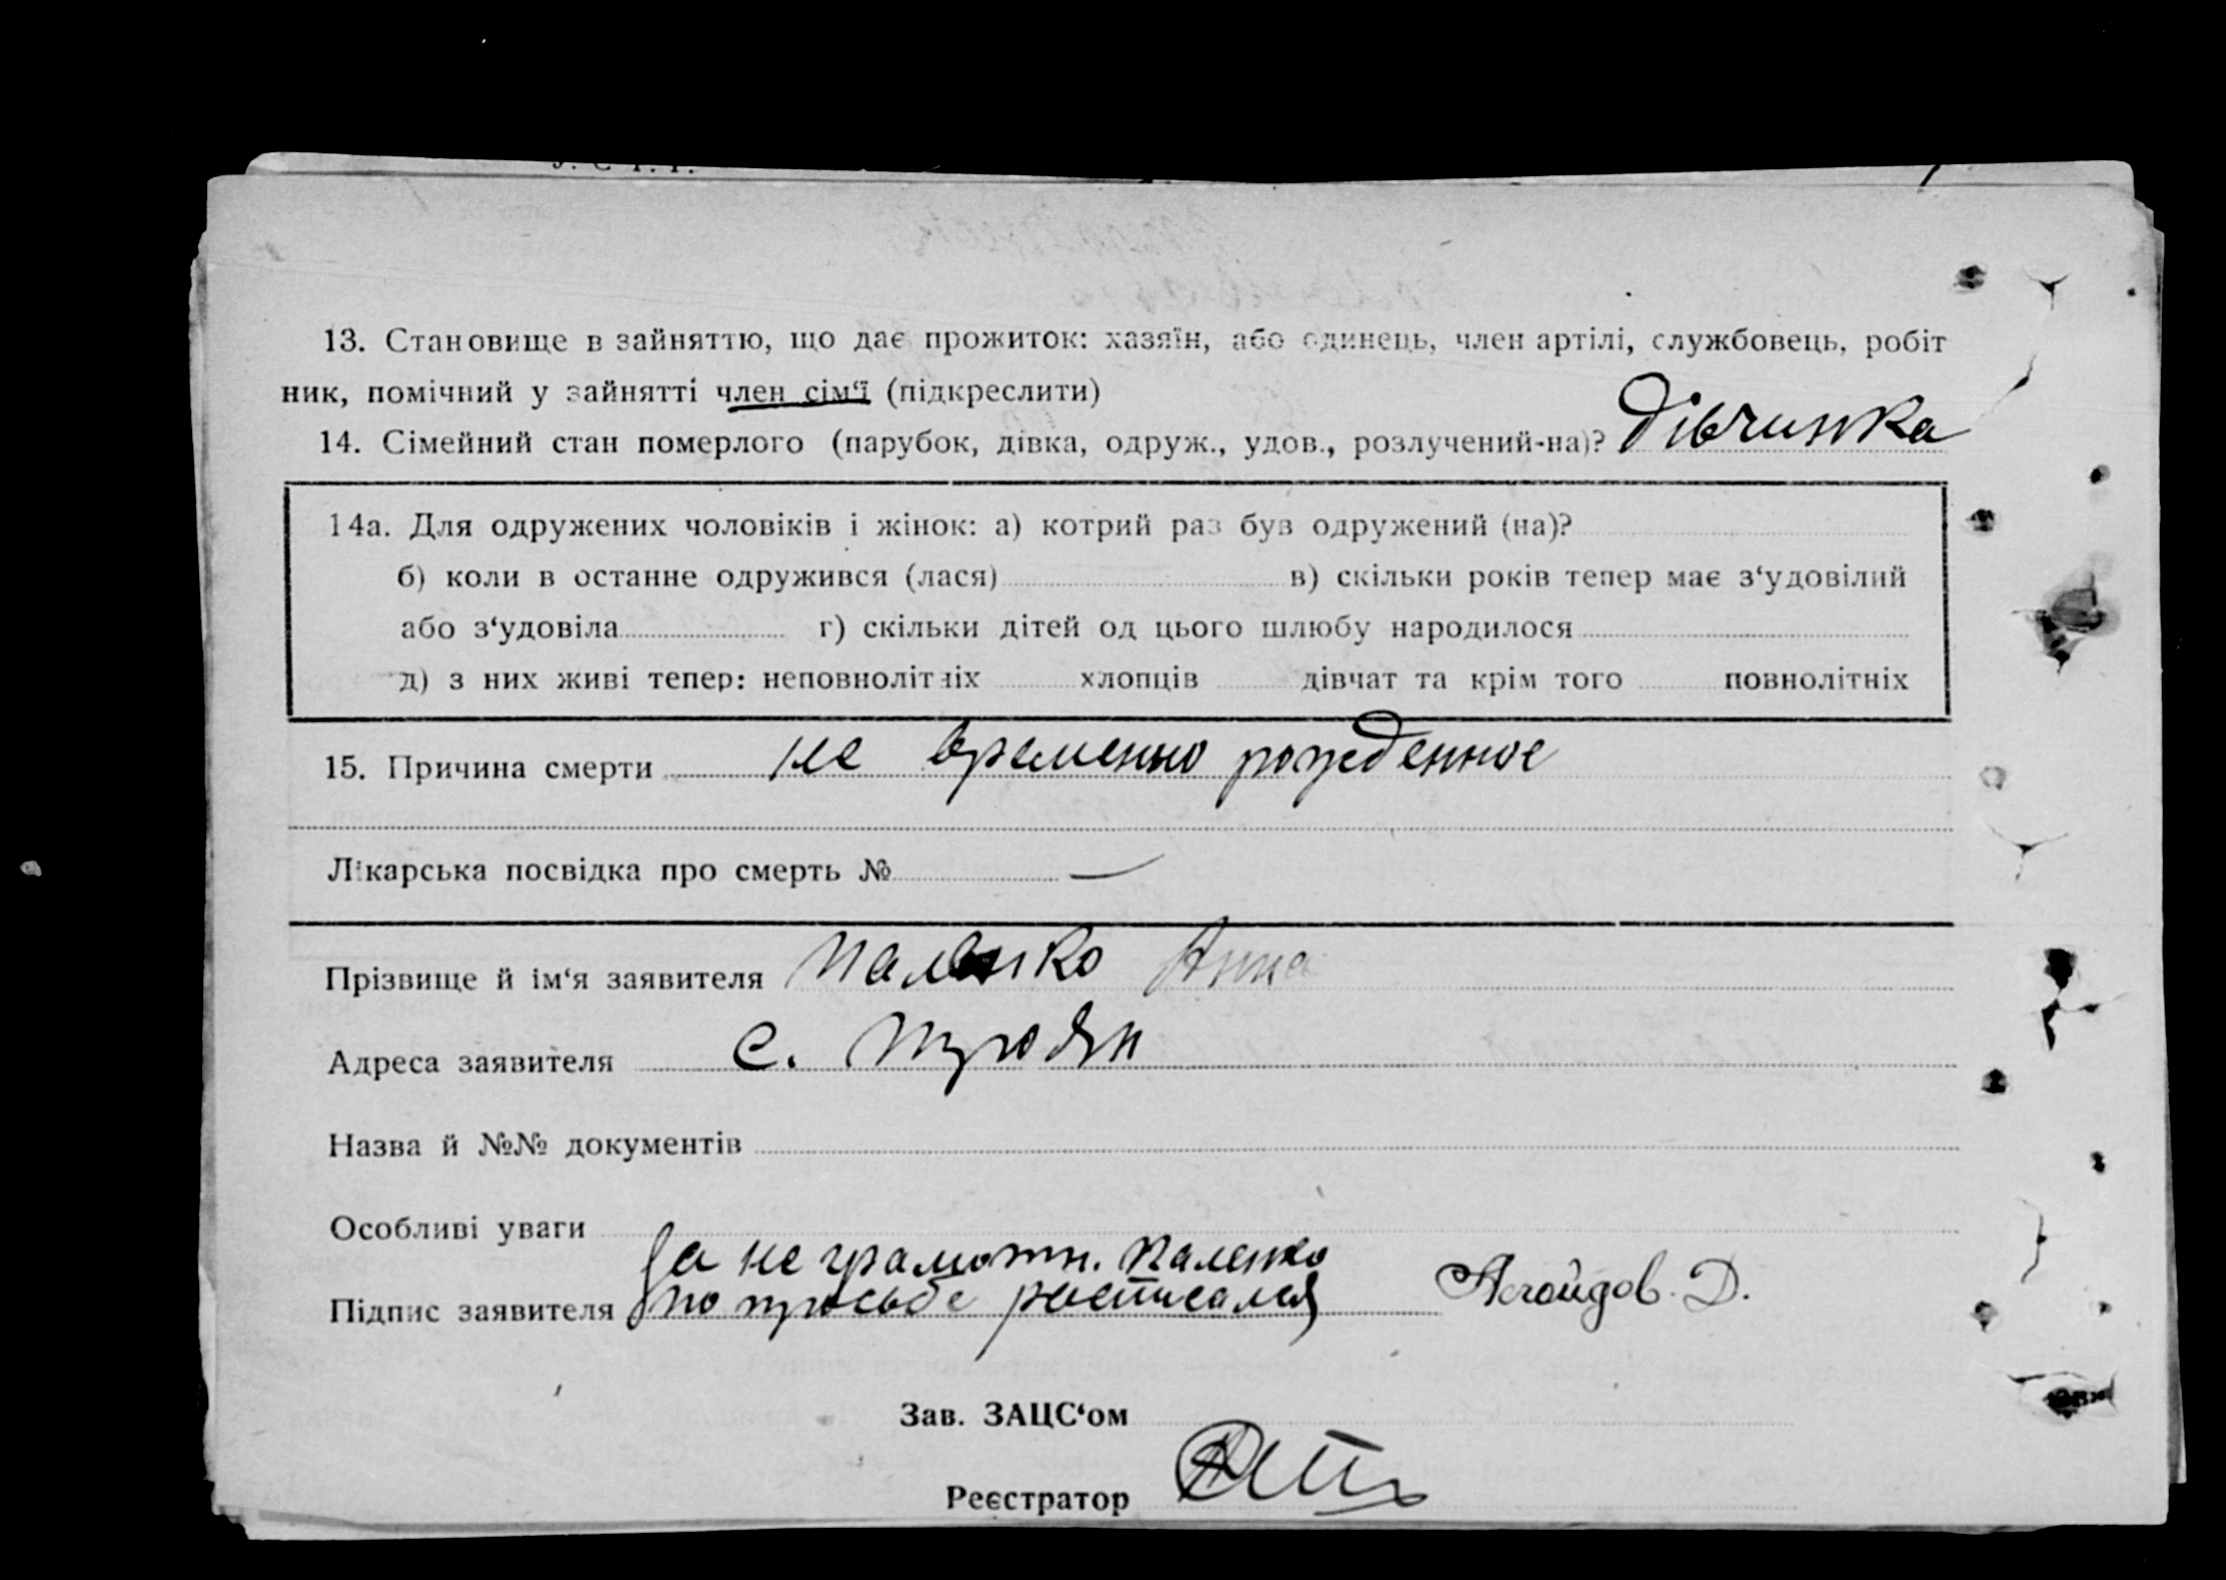 13. Становище в зайняттю, що дає прожиток: хазяїн, або одинець, член артілі, службовець, робіт
ник, помічний у зайнятті член сім‘ї (підкреслити)
14. Сімейний стан померлого (парубок, дівка, одруж., удов., розлучений-на)? дівчинка
14а. Для одружених чоловіків і жінок: а) котрий раз був одружений (на)?
б) коли в останне одружився (лася) в) скільки років тепер має з‘удовілий
або з‘удовіла г) скільки дітей од цього шлюбу народилося
д) з них живі тепер: неповнолітніх хлопців дівчат та крім того повнолітніх
15. Причина смерти не временно рожденное
Лікарська посвідка про смерть № —
Прізвище й ім‘я заявителя Паленко Анна
Адреса заявителя с. Троян
Назва й №№ документів
Особливі уваги
За не грамотн. Паленко
Підпис заявителя по просьбе росписался Д.
Зав. ЗАЦС‘ом
Реєстратор